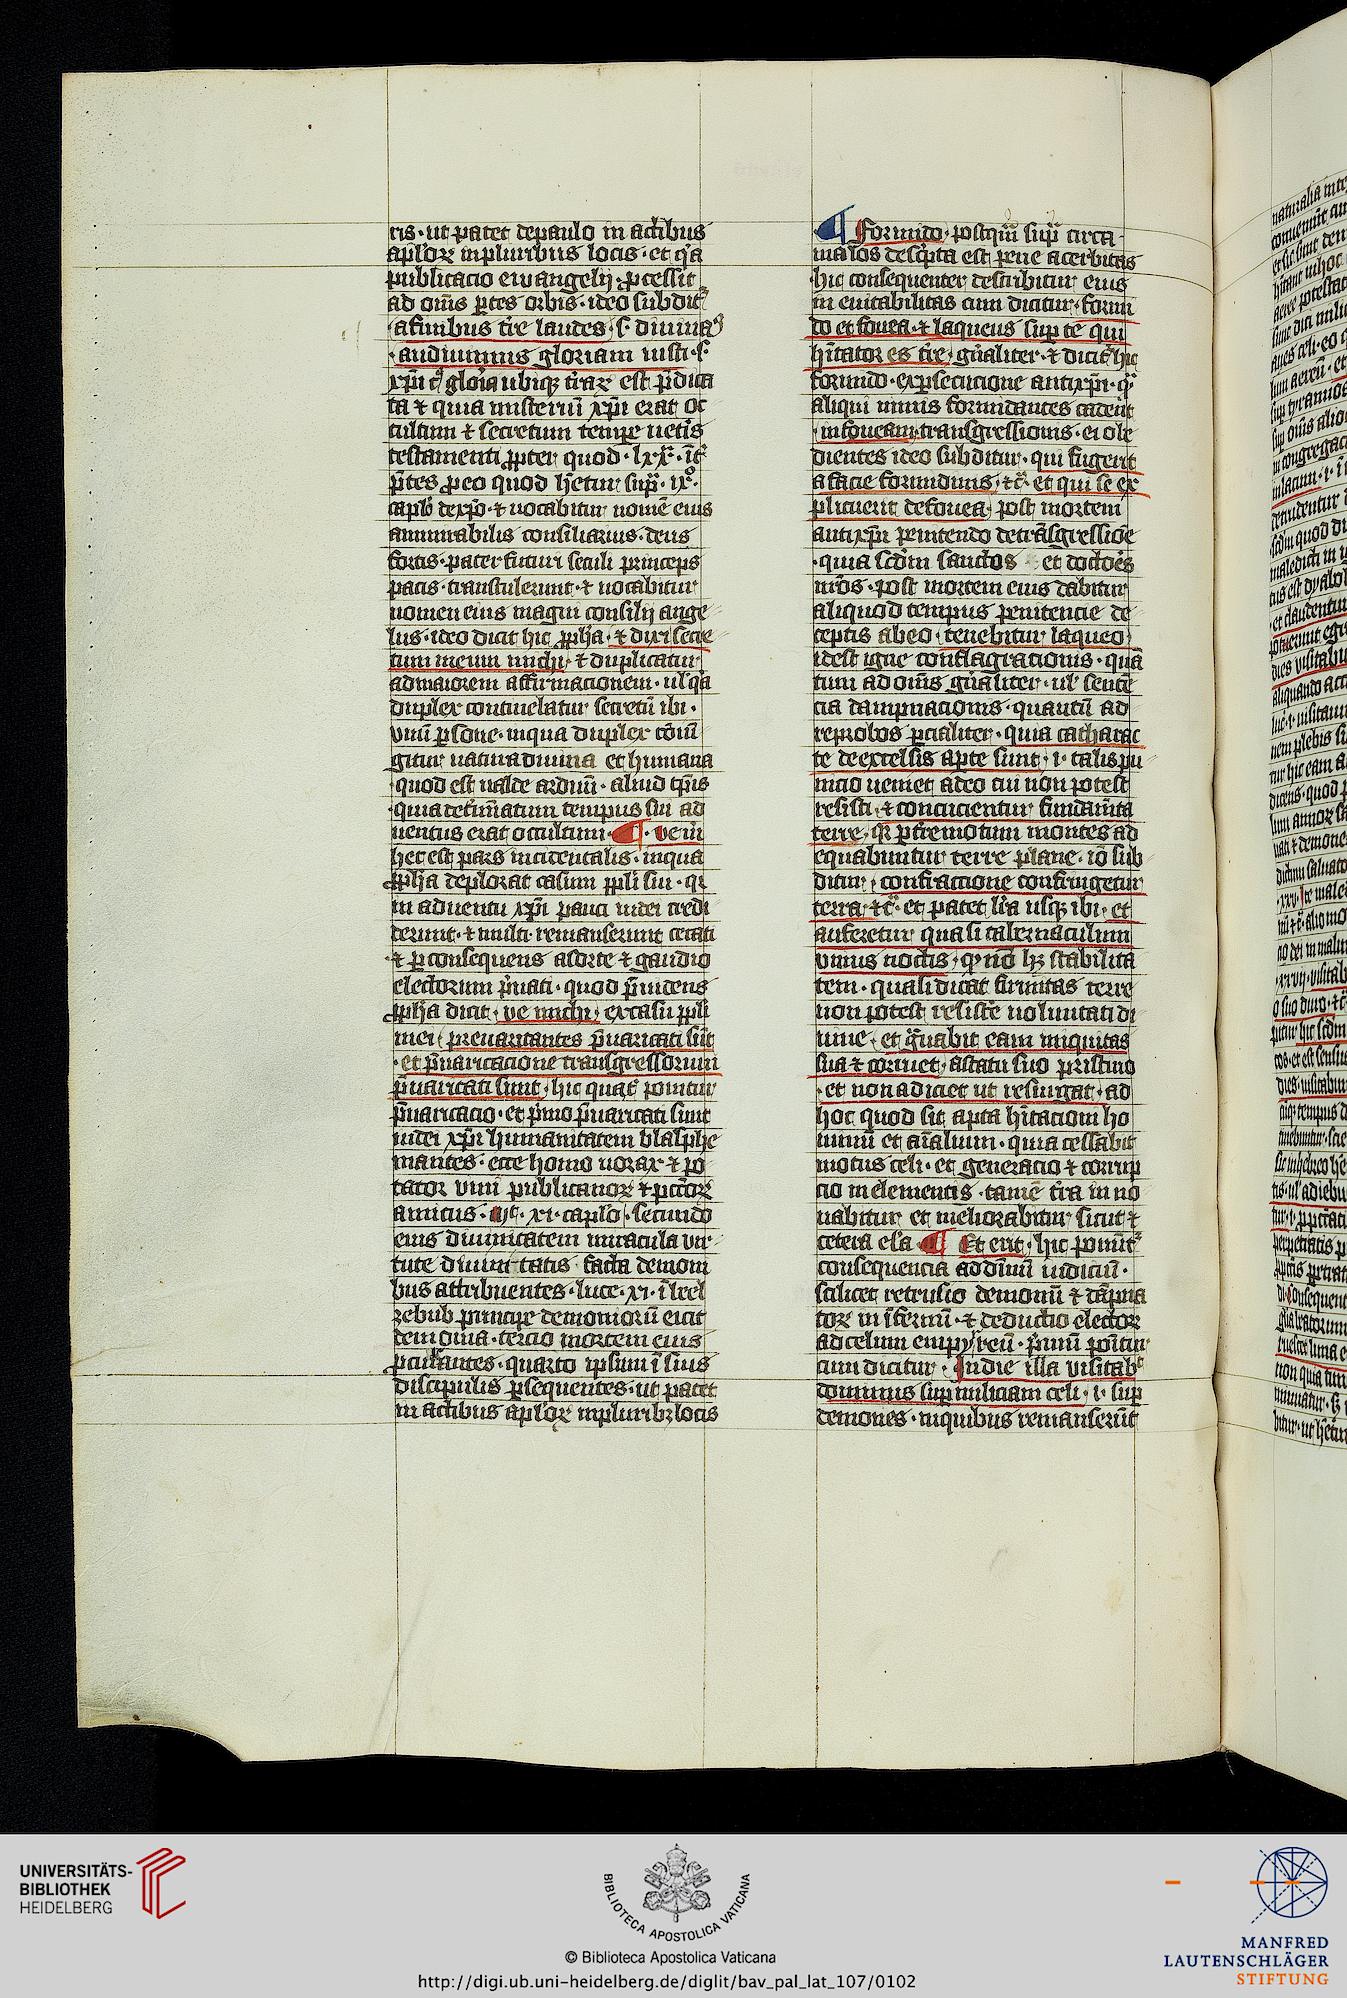 cis · ut patet de paulo in actibus
apl'oꝝ in pluribus locis · et q̇a
publicacio ewangelij ꝓcessit
ad om̄s ꝑtes orbis · ideo subdit᷑
a finibus t̄re laudes · s · diuinas
audiuimus gloriam iusti · s ·
xp̄i
gl'oīa ubiqꝫ t̄raꝝ est p̄dica
ta ⁊ quia misteriū xp̄i erat oc
cultum ⁊ secretum tempe uet̄is
testamenti ꝓpter quod · lxx ·
p̄tes ꝓ eo quod h̄etur sup̄ · ix° ·
caplo de xp̄o · ⁊ uocabitur nomē eius
ammirabilis consiliarius · deus
fortis · pater futuri seculi princeps
pacis · transtulerunt · ⁊ uocabitur
nomen eius magni consilij ange
lus · ideo dicit hic ꝓph̄a · ⁊ dixi secre
tum meum michi · ⁊ duplicatur
ad maiorem affirmacionem · ul' q̇a
duplex continebatur secretū ibi ·
vniꝰ ꝑsone · in qua duplex cōiū
gitur natura diuina et humana
quod est ualde arduū · aliud tp̄is
quia det̄minatum tempus sui ad
uentus erat occultum · ¶ · ve m̄
hec est pars incidentalis · in qua
ꝓph̄a deplorat casum ppli sui · qꝛ
in aduentu xp̄i pauci iudei credi
derunt · ⁊ multi remanserunt cecati
⁊ ꝑ consequens a sorte ⁊ gaudio
electorum p̄uati · quod p̄uidens
ꝓph̄a dicit · ve michi · ex casu ppli
mei · preuaricantes p̄uaricati sūt
· et p̄uaricacione transgressorum
p̄uaricati sunt · hic quat᷑ ponitur
p̄uaricacio · et p̄mo p̄uaricati sunt
iudei xp̄i humanitatem blasphe
mantes · ecce homo uorax ⁊ po
tator vini publicanoꝝ ⁊ pctōꝝ
amicus · mt̄ · xi · caplo · secundo
eius diuinitatem miracula vir
tute diuinitatis facta demoni
bus attribuentes · luce · xi · ī beel
zebub principe demonioꝝ eicit
demonia · tercio mortem eius
ꝓcurantes · quarto ipsum ī suis
discipulis ꝑsequentes · ut patet
in actibus apl'oꝝ in pluribꝫ locis
¶ Formido · postqȝ sup̄ circa
malos descⁱpta est pene acerbitas
hic consequenter describitur eius
in euitabilitas cum dicitur · formi
do et fouea · ⁊ laqueus sup te qui
h̄itator es t̄re · gn̄aliter · ⁊ dicit᷑ hic
formido · ex ꝑsecucione antixp̄i · qᵃ
aliqui nimis formidantes cadent
· in foueam · transgressionis · ei obe
dientes ideo subditur · qui fugerit
a facie formidinis · ⁊c̄ · et qui se ex
plicuerit de fouea · post mortem
antixp̄i penitendo de trāsgressiōe
· quia scd'm sanctos et doctōes
nr̄os · post mortem eius dabitur
aliquod tempus penitencie de
ceptis ab eo · tenebitur laqueo
idest igne conflagracionis · quā
tum ad om̄s gn̄aliter · ul' senten
cia dampnacionis · quantū ad
reprobos ꝑcialiter · quia catharac
te de excelsis apte sunt · i · talis pu
nicio ueniet adeo cui non potest
resisti · ⁊ concucientur fundam̄ta
terre · qꝛ ꝑ t̄remotum montes ad
equabuntur terre plane · iō sub
ditur · confractione confringetur
terra · ⁊c̄ · et patet lr̄a usqꝫ ibi · et
auferetur quasi tabernaculum
vnius noctis · nō hꝫ stabilita
tem · quasi dicat firmitas terre
non potest resist'e uoluntati di
uine · et g̈uabit eam iniquitas
sua ⁊ corruet · a statu suo pristino
· et non adiciet ut resurgat · ad
hoc quod sit apta h̄itacioni ho
minū et aīalium · quia cessabit
motus celi · et generacio ⁊ corrup
cio in elementis · tamē t̄ra in no
uabitur et meliorabitur sicut ⁊
cetera el'a · ¶ Et erit · hic ponit᷑
consequencia ad diuinū iudiciū ·
scilicet retrusio demonū ⁊ dāpna
toꝝ in īfernū · ⁊ deductio electoꝝ
ad celum empyreū · p̄mum ponitur
cum dicitur · In die illa visitabᵗ
dominus sup miliciam celi · i · sup
demones · in quibus remanserūt
UNIVERSITÄTS-
BIBLIOTHEK
HEIDELBERG
BIBLIOTECA APOSTOLICA VATICANA
© Biblioteca Apostolica Vaticana
http://digi.ub.uni-heidelberg.de/diglit/bav_pal_lat_107/0102
MANFRED
LAUTENSCHLÄGER
STIFTUNG